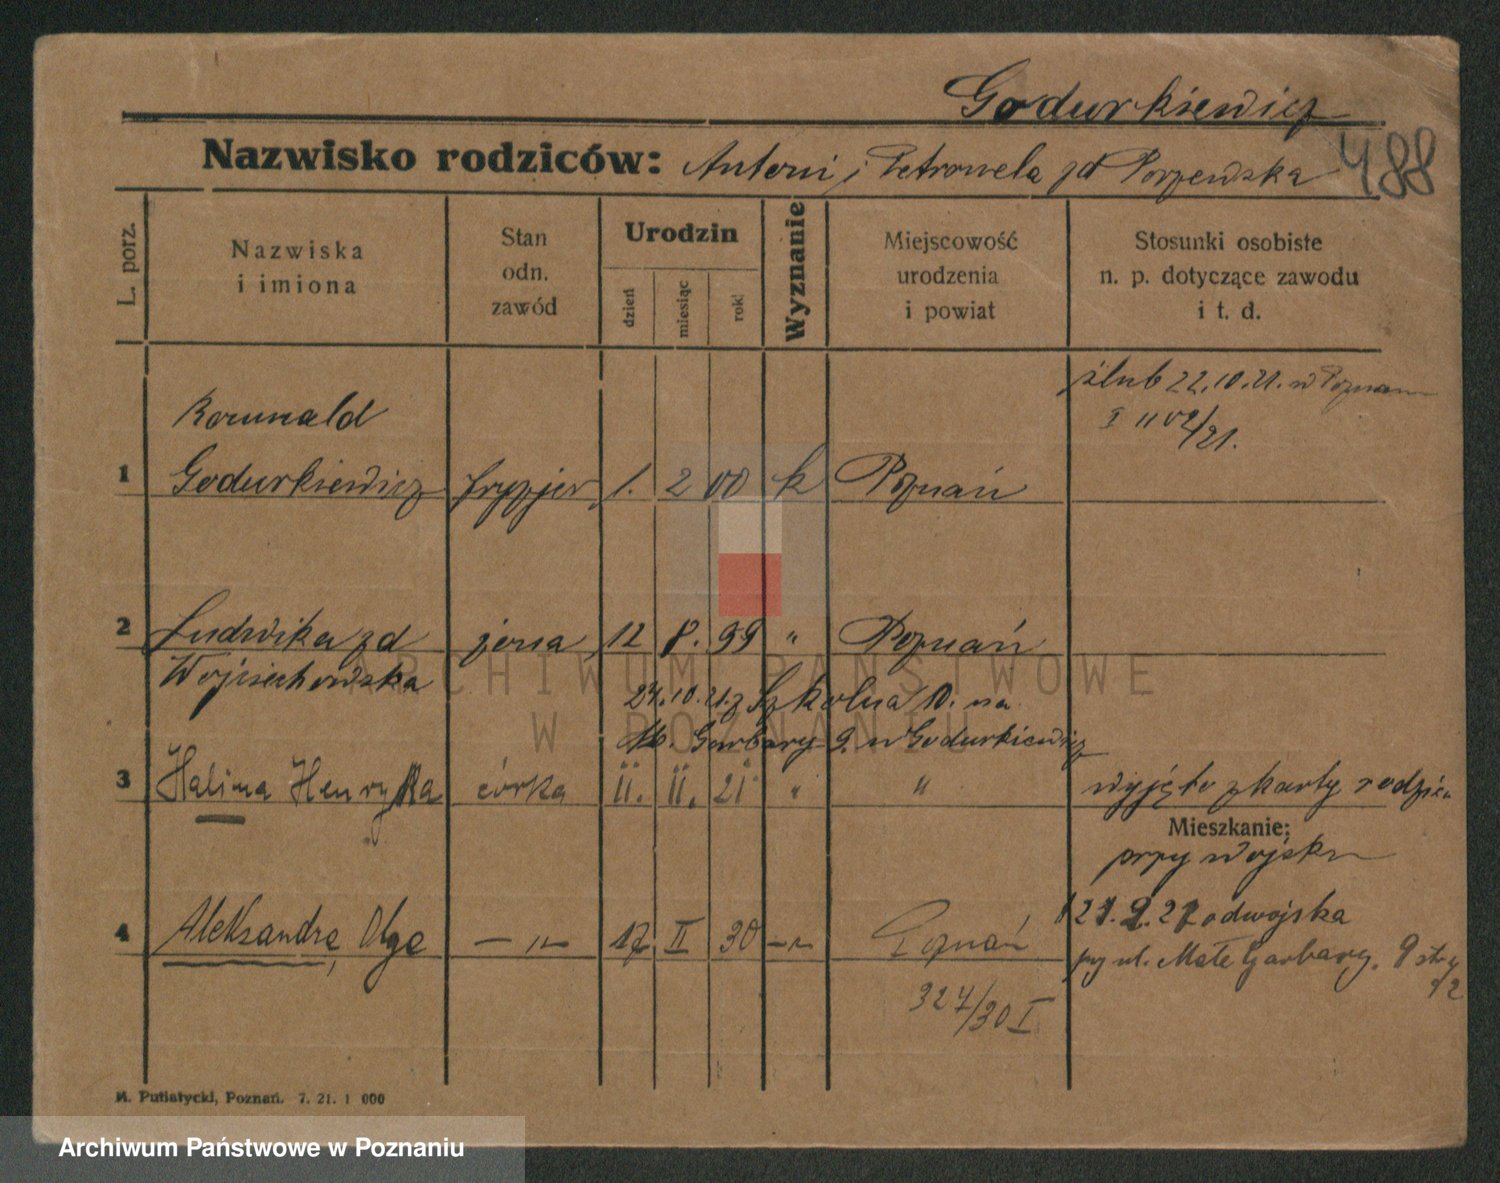 Godurkiewicz
Nazwisko rodziców: Antoni i Petronela zd Porzewska
488
L. porz.
Nazwiska
i imiona
Stan
odn.
zawód
Urodzin
dzień
miesiąc
rok
Wyznanie
Miejscowość
urodzenia
i powiat
Stosunki osobiste
n. p. dotyczące zawodu
i t. d.
ślub 22.10.21. w Poznan
I 1102/21.
Romuald
1 Godurkiewicz fryzjer 1. 2 00 k Poznań
2 Ludwika zd żona 12 8. 99 " Poznań
Wojciechowska
24.10.21. z Szkolna 10. na
M. Garbary 9. w Godurkiewicz
3 Halina Henryka córka 11. 11. 21 " "
wyjęto z karty rodzic
Mieszkanie:
przy wojsku
21.9.21 od wojska
4 Aleksandra, Olga — " — 17 II 30 — " — Poznań
przy ul. Małe Garbary. 9
327/30 I
M. Putiatycki, Poznań. 7. 21. 1 000
ARCHIWUM PAŃSTWOWE
W POZNANIU
Archiwum Państwowe w Poznaniu